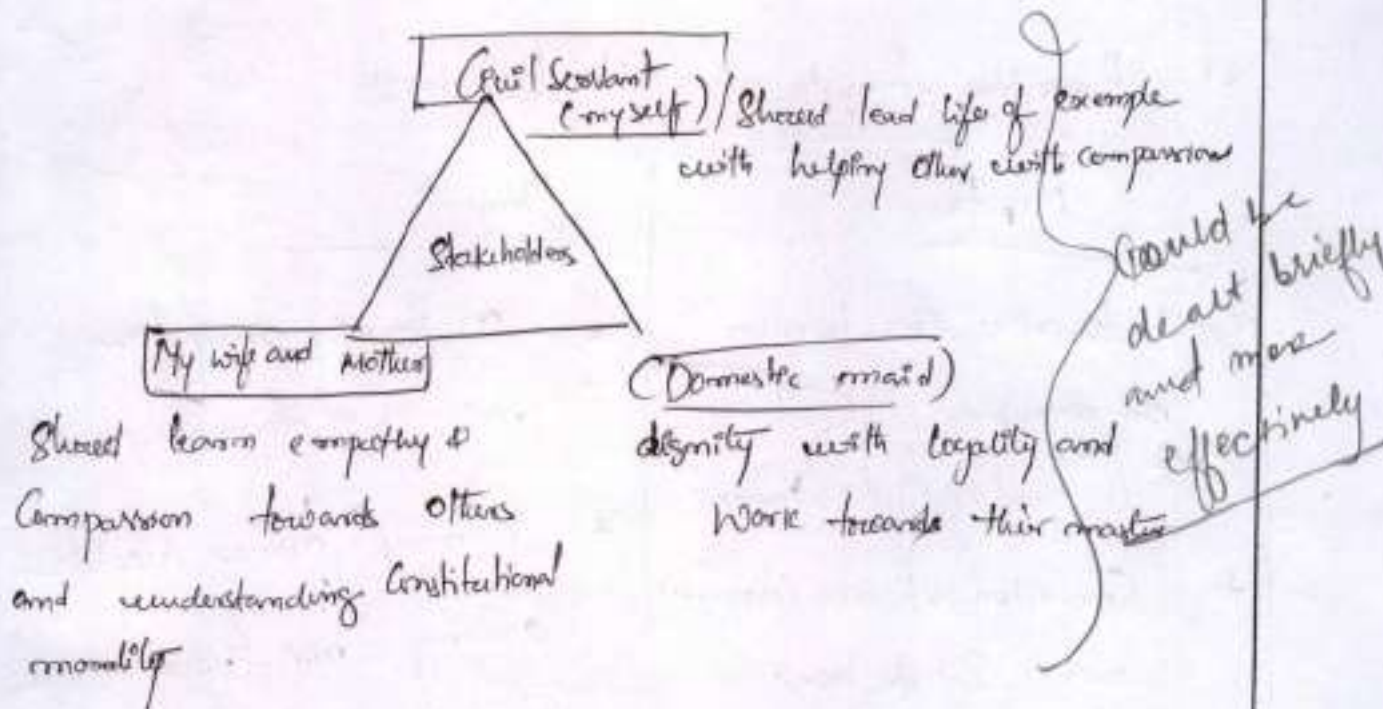 Civil Servant
(myself) / Shared lead life of example
with helping other with compassion
Stakeholders
My wife and Mother
Shared learn empathy &
Compassion towards others
and understanding Constitutional
morality.
(Domestic maid)
dignity with loyality and
Work towards their master
Could be
dealt briefly
and more
effectively